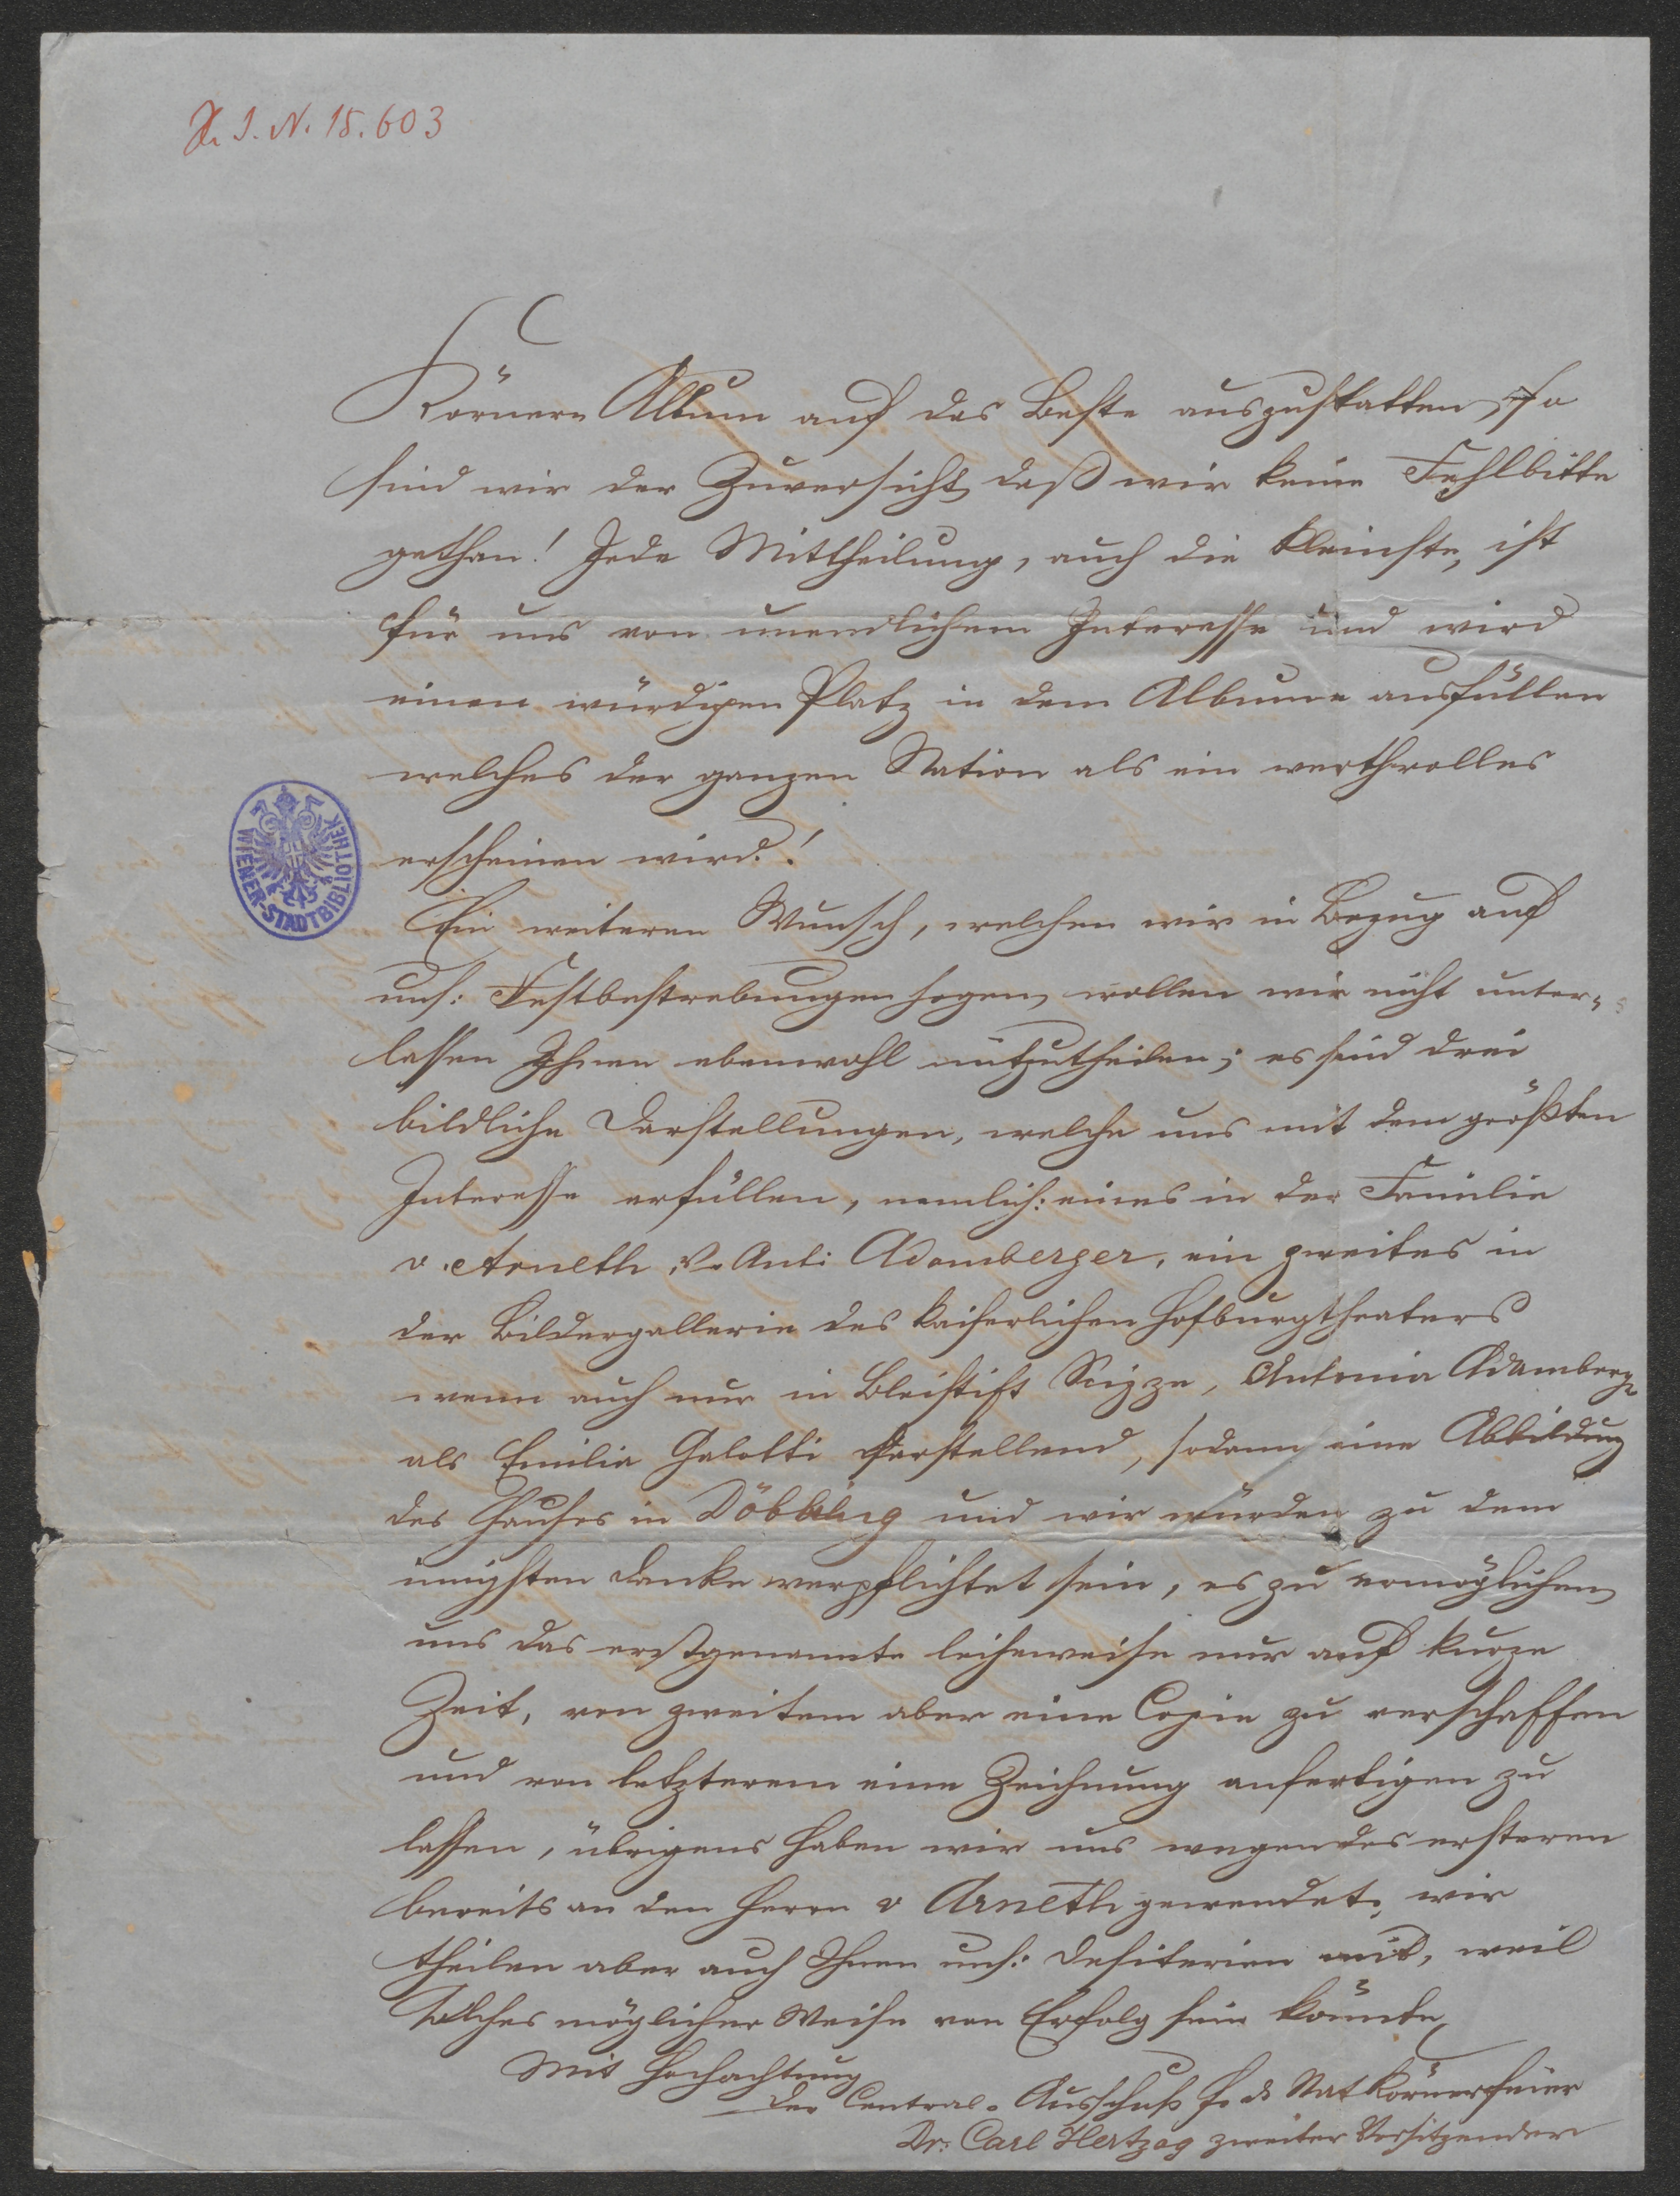 H. I. N. 15.603
Körner-Album auf das Beste auszustatten, so
sind wir der Zuversicht, daß wir keine Fehlbitte
gethan! Jede Mittheilung, auch die kleinste, ist
für uns von unendlichem Interesse und wird
einen würdigen Platz in dem Albume ausfüllen
welches der ganzen Nation als ein werthvolles
erscheinen wird!
WIENER-STADTBIBLIOTHEK
Ein weiteren Wunsch, welchen wir in Bezug auf
uns: Festbestrebungen hegen, wollen wir nicht unter-
lassen Ihnen ebenwohl mitzutheilen; es sind drei
bildliche Darstellungen, welche uns mit dem größten
Interesse erfüllen, nemlich: eines in der Familie
v. Arneth, v. Ant: Adamberger, ein zweites in
der Bildergallerie des kaiserlichen Hofburgtheaters
wenn auch nur in Bleistift Scizze, Antonia Adamberg.
als Emilia Galotti darstellend, sodann eine Abbildung
des Hauses in Döbbling und wir würden zu dem
innigsten Danke verpflichtet sein, es zu ermöglichen,
uns das erstgenannte leiheweise nur auf kurze
Zeit, von zweitem aber eine Copie zu verschaffen
und von letzterem eine Zeichnung anfertigen zu
lassen, übrigens haben wir uns wegen des ersteren
bereits an den Herrn v Arneth gewendet, wir
theilen aber auch Ihnen uns: Desiterien mit, weil
solches möglicher Weise von Erfolg sein könnte,
Mit Hochachtung
Der Central-Ausschuß f. d. Nat Körnerfeier
Dr: Carl Hertzog zweiter Vorsitzender